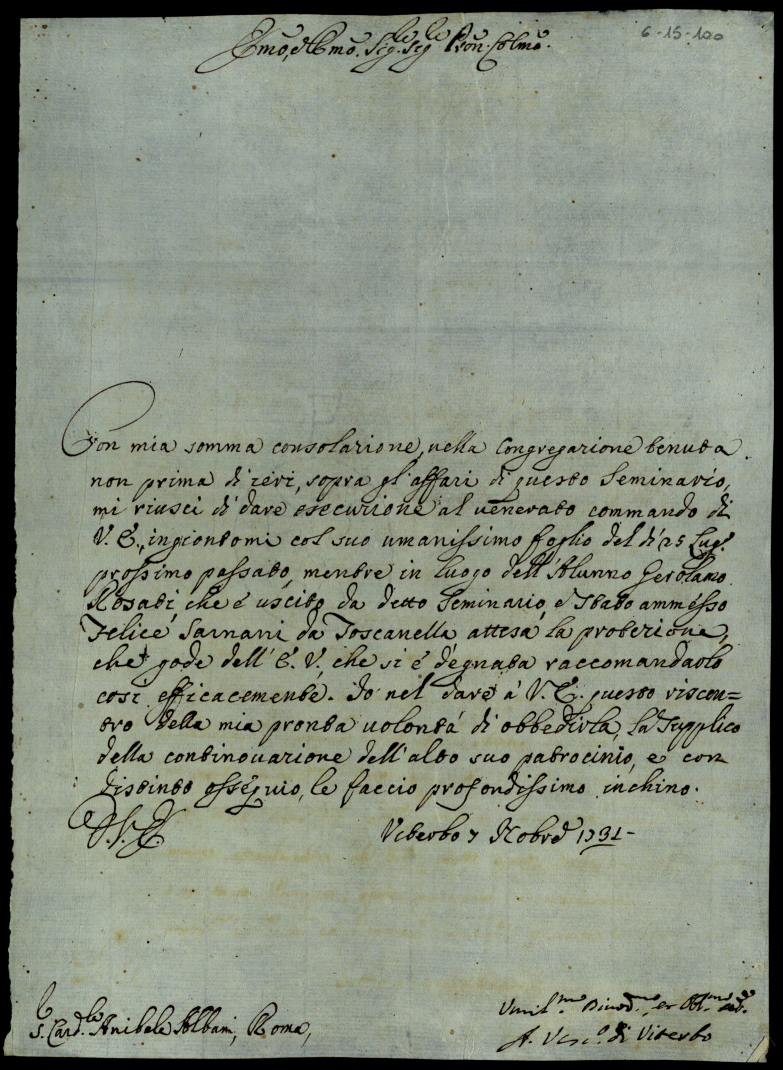 6-15-100
Emo, e Rmo. Sig.re Sig.re Pron. Colmo.
Con mia somma consolazione, nella Congregazione tenuta
non prima di ieri, sopra gl'affari di questo Seminario,
mi riuscì di dare esecuzione al venerato commando di
V. E., ingiontomi col suo umanissimo foglio del dì 25 Lug.
prossimo passato, mentre in luogo dell'Alunno Gerolamo
Rosati, che è uscito da detto Seminario, è stato ammesso
Felice Sarnani da Toscanella attesa la protezione,
che gode dell'E. V. che si è degnata raccomandarlo
così efficacemente. Io nel dare à V. E. questo riscon=
tro della mia pronta volontà di obbedirla, la supplico
della continovazione dell'alto suo patrocinio, e con
distinto ossequio, le faccio profondissimo inchino.
D. V. E.
Viterbo 7 Nobre 1731-
S. Card.le Anibale Albani, Roma,
Umil.mo Divot.mo et Obl.mo
A. Vesc.o di Viterbo